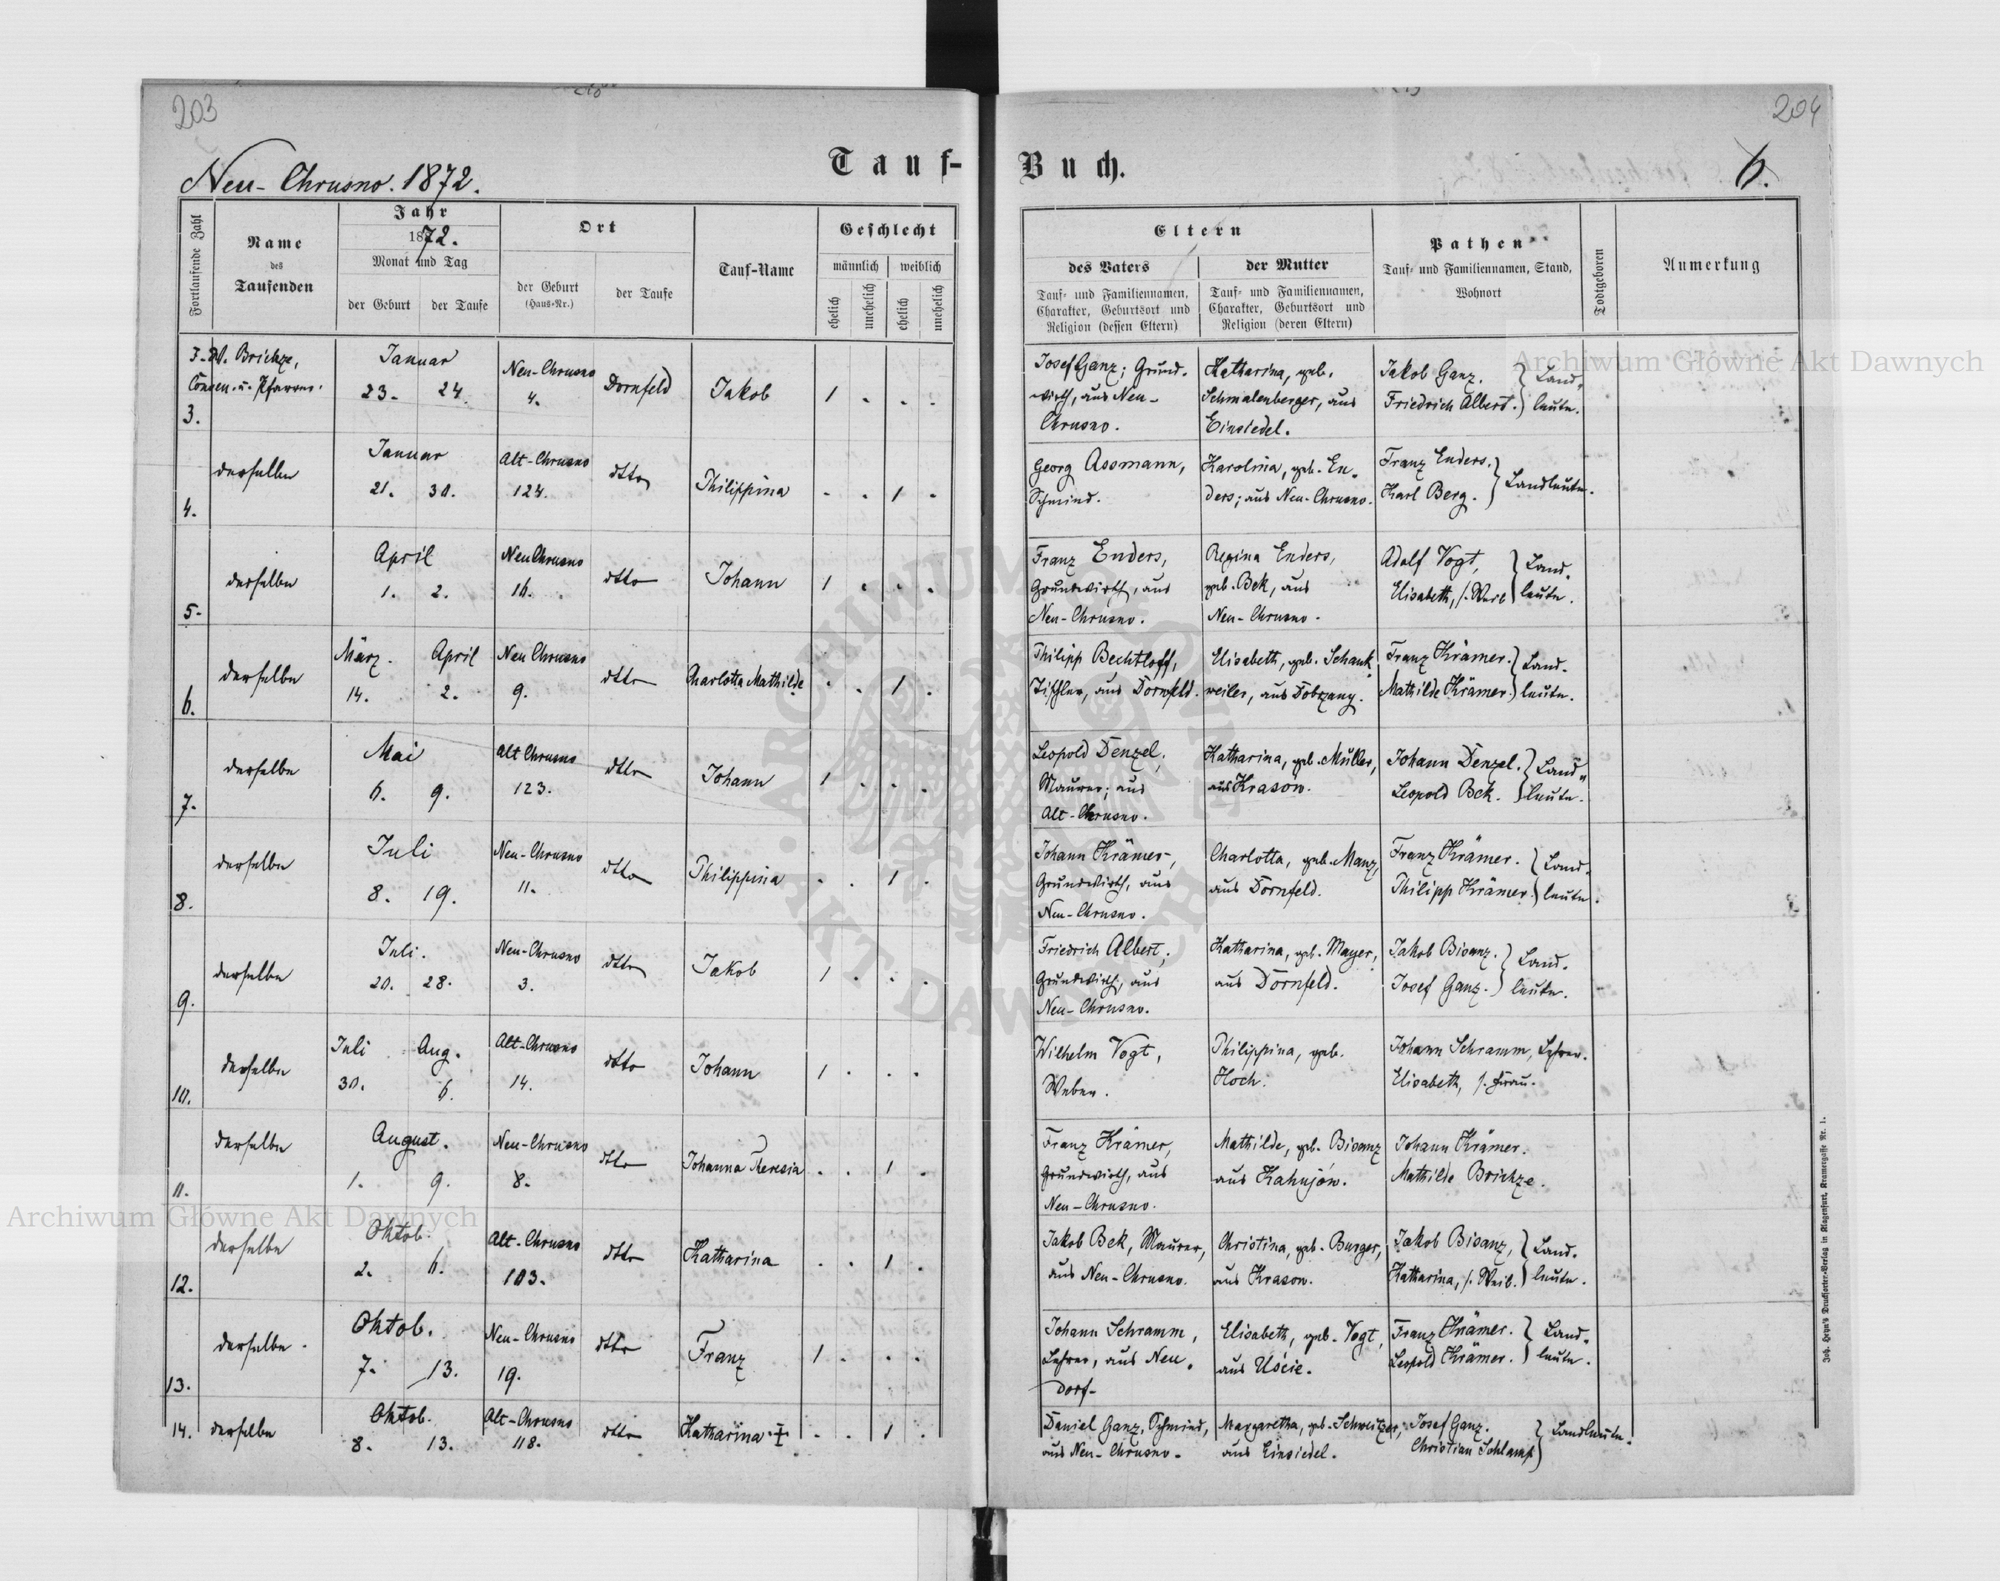 203
204
Neu-Chrusno. 1872.
Tauf-
Buch.
6.
Fortlaufende Zahl
Name
des
Taufenden
Jahr
1872.
Monat und Tag
der Geburt
der Taufe
Ort
der Geburt
(Haus-Nr.)
der Taufe
Tauf-Name
Geschlecht
männlich
weiblich
ehelich
unehelich
ehelich
unehelich
Eltern
des Vaters
der Mutter
Tauf- und Familiennamen,
Charakter, Geburtsort und
Religion (dessen Eltern)
Tauf- und Familiennamen,
Charakter, Geburtsort und
Religion (deren Eltern)
Pathen
Tauf- und Familiennamen, Stand,
Wohnort
Todtgeboren
Anmerkung
Brickze,
3.
Januar
23. 24.
Neu-Chrusno
4.
Dornfeld
Jakob
1 . . .
Josef Ganz; Grund-
wirth, aus Neu-
Chrusno.
Katharina, geb.
Schmalenberger, aus
Einsiedel.
Jakob Ganz.
Friedrich Albert.
Land-
leute.
4.
derselbe
Januar
21. 30.
Alt-Chrusno
124.
dtto
Philippina
. . 1 .
Georg Assmann,
Schmied.
Karolina, geb. En-
ders; aus Neu-Chrusno.
Franz Enders.
Karl Berg.
Landleute.
5.
derselbe
April
1. 2.
Neu Chrusno
16.
dtto
Johann
1 . . .
Franz Enders,
Grundwirth, aus
Neu-Chrusno.
Regina Enders,
geb. Bek, aus
Neu-Chrusno.
Adolf Vogt,
Elisabeth, s. Weib
Land-
leute.
6.
derselbe
März. April
14. 2.
Neu Chrusno
9.
dtto
Charlotta Mathilde
. . 1 .
Philipp Bechtloff,
Tischler, aus Dornfeld.
Elisabeth, geb. Schank-
weiler, aus Dobrzany.
Franz Krämer.
Mathilde Krämer.
Land-
leute.
7.
derselbe
Mai
6. 9.
Alt Chrusno
123.
dtto
Johann
1 . . .
Leopold Denzel,
Maurer; aus
Alt-Chrusno.
Katharina, geb. Müller,
aus Krasów.
Johann Denzel.
Leopold Bek.
Land-
leute.
8.
derselbe
Juli
8. 19.
Neu-Chrusno
11.
dtto
Philippina
. . 1 .
Johann Krämer,
Grundwirth, aus
Neu-Chrusno.
Charlotta, geb. Manz,
aus Dornfeld.
Franz Krämer.
Philipp Krämer.
Land-
leute.
9.
derselbe
Juli.
20. 28.
Neu-Chrusno
3.
dtto
Jakob
1 . . .
Friedrich Albert,
Grundwirth, aus
Neu-Chrusno.
Katharina, geb. Mayer,
aus Dornfeld.
Jakob Bisanz.
Josef Ganz.
Land-
leute.
10.
derselbe
Juli Aug.
30. 6.
Alt-Chrusno
14.
dtto
Johann
1 . . .
Wilhelm Vogt,
Weber.
Philippina, geb.
Hoch.
Johann Schramm, Lehrer.
Elisabeth, s. Frau.
11.
derselbe
August.
1. 9.
Neu-Chrusno
8.
dtto
Johanna Theresia
. . 1 .
Franz Krämer,
Grundwirth, aus
Neu-Chrusno.
Mathilde, geb. Bisanz
aus Kahujów.
Johann Krämer.
Mathilde Brickze.
12.
derselbe
Oktob.
2. 6.
Alt-Chrusno
103.
dtto
Katharina
. . 1 .
Jakob Bek, Maurer,
aus Neu-Chrusno.
Christina, geb. Burger,
aus Krasow.
Jakob Bisanz,
Katharina, s. Weib.
Land-
leute.
13.
derselbe.
Oktob.
7. 13.
Neu-Chrusno
19.
dtto
Franz
1 . . .
Johann Schramm,
Lehrer, aus Neu-
dorf.
Elisabeth, geb. Vogt,
aus Uście.
Franz Krämer.
Leopold Krämer.
Land-
leute.
14.
derselbe
Oktob.
8. 13.
Alt-Chrusno
118.
dtto
Katharina
. . 1 .
Daniel Ganz, Schmied,
aus Neu-Chrusno.
Margaretha, geb. Schweitzer,
aus Einsiedel.
Josef Ganz.
Christian Schlamp
Landleute.
Joh. Heyn's Drucksorten-Verlag in Klagenfurt, Kramergasse Nr. 1.
Archiwum Główne Akt Dawnych
Archiwum Główne Akt Dawnych